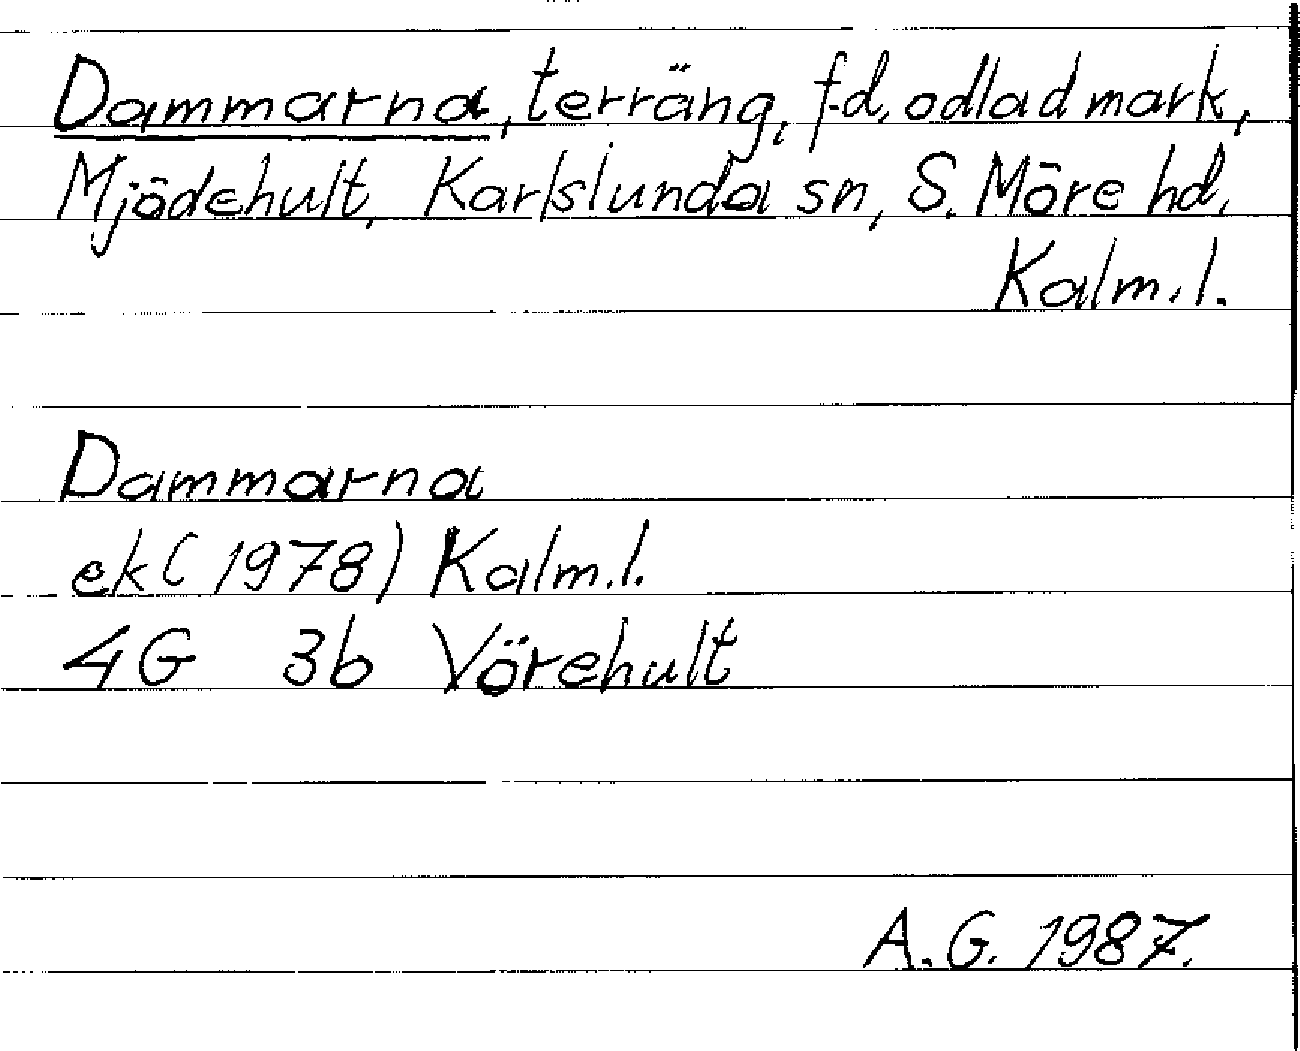 Dammarna, terräng, f.d. odlad mark,
Mjödehult, Karlslunda sn, S. Möre hd,
Kalm. l.
Dammarna
ek (1978) Kalm. l.
4G 3b Vörehult
A.G. 1987.